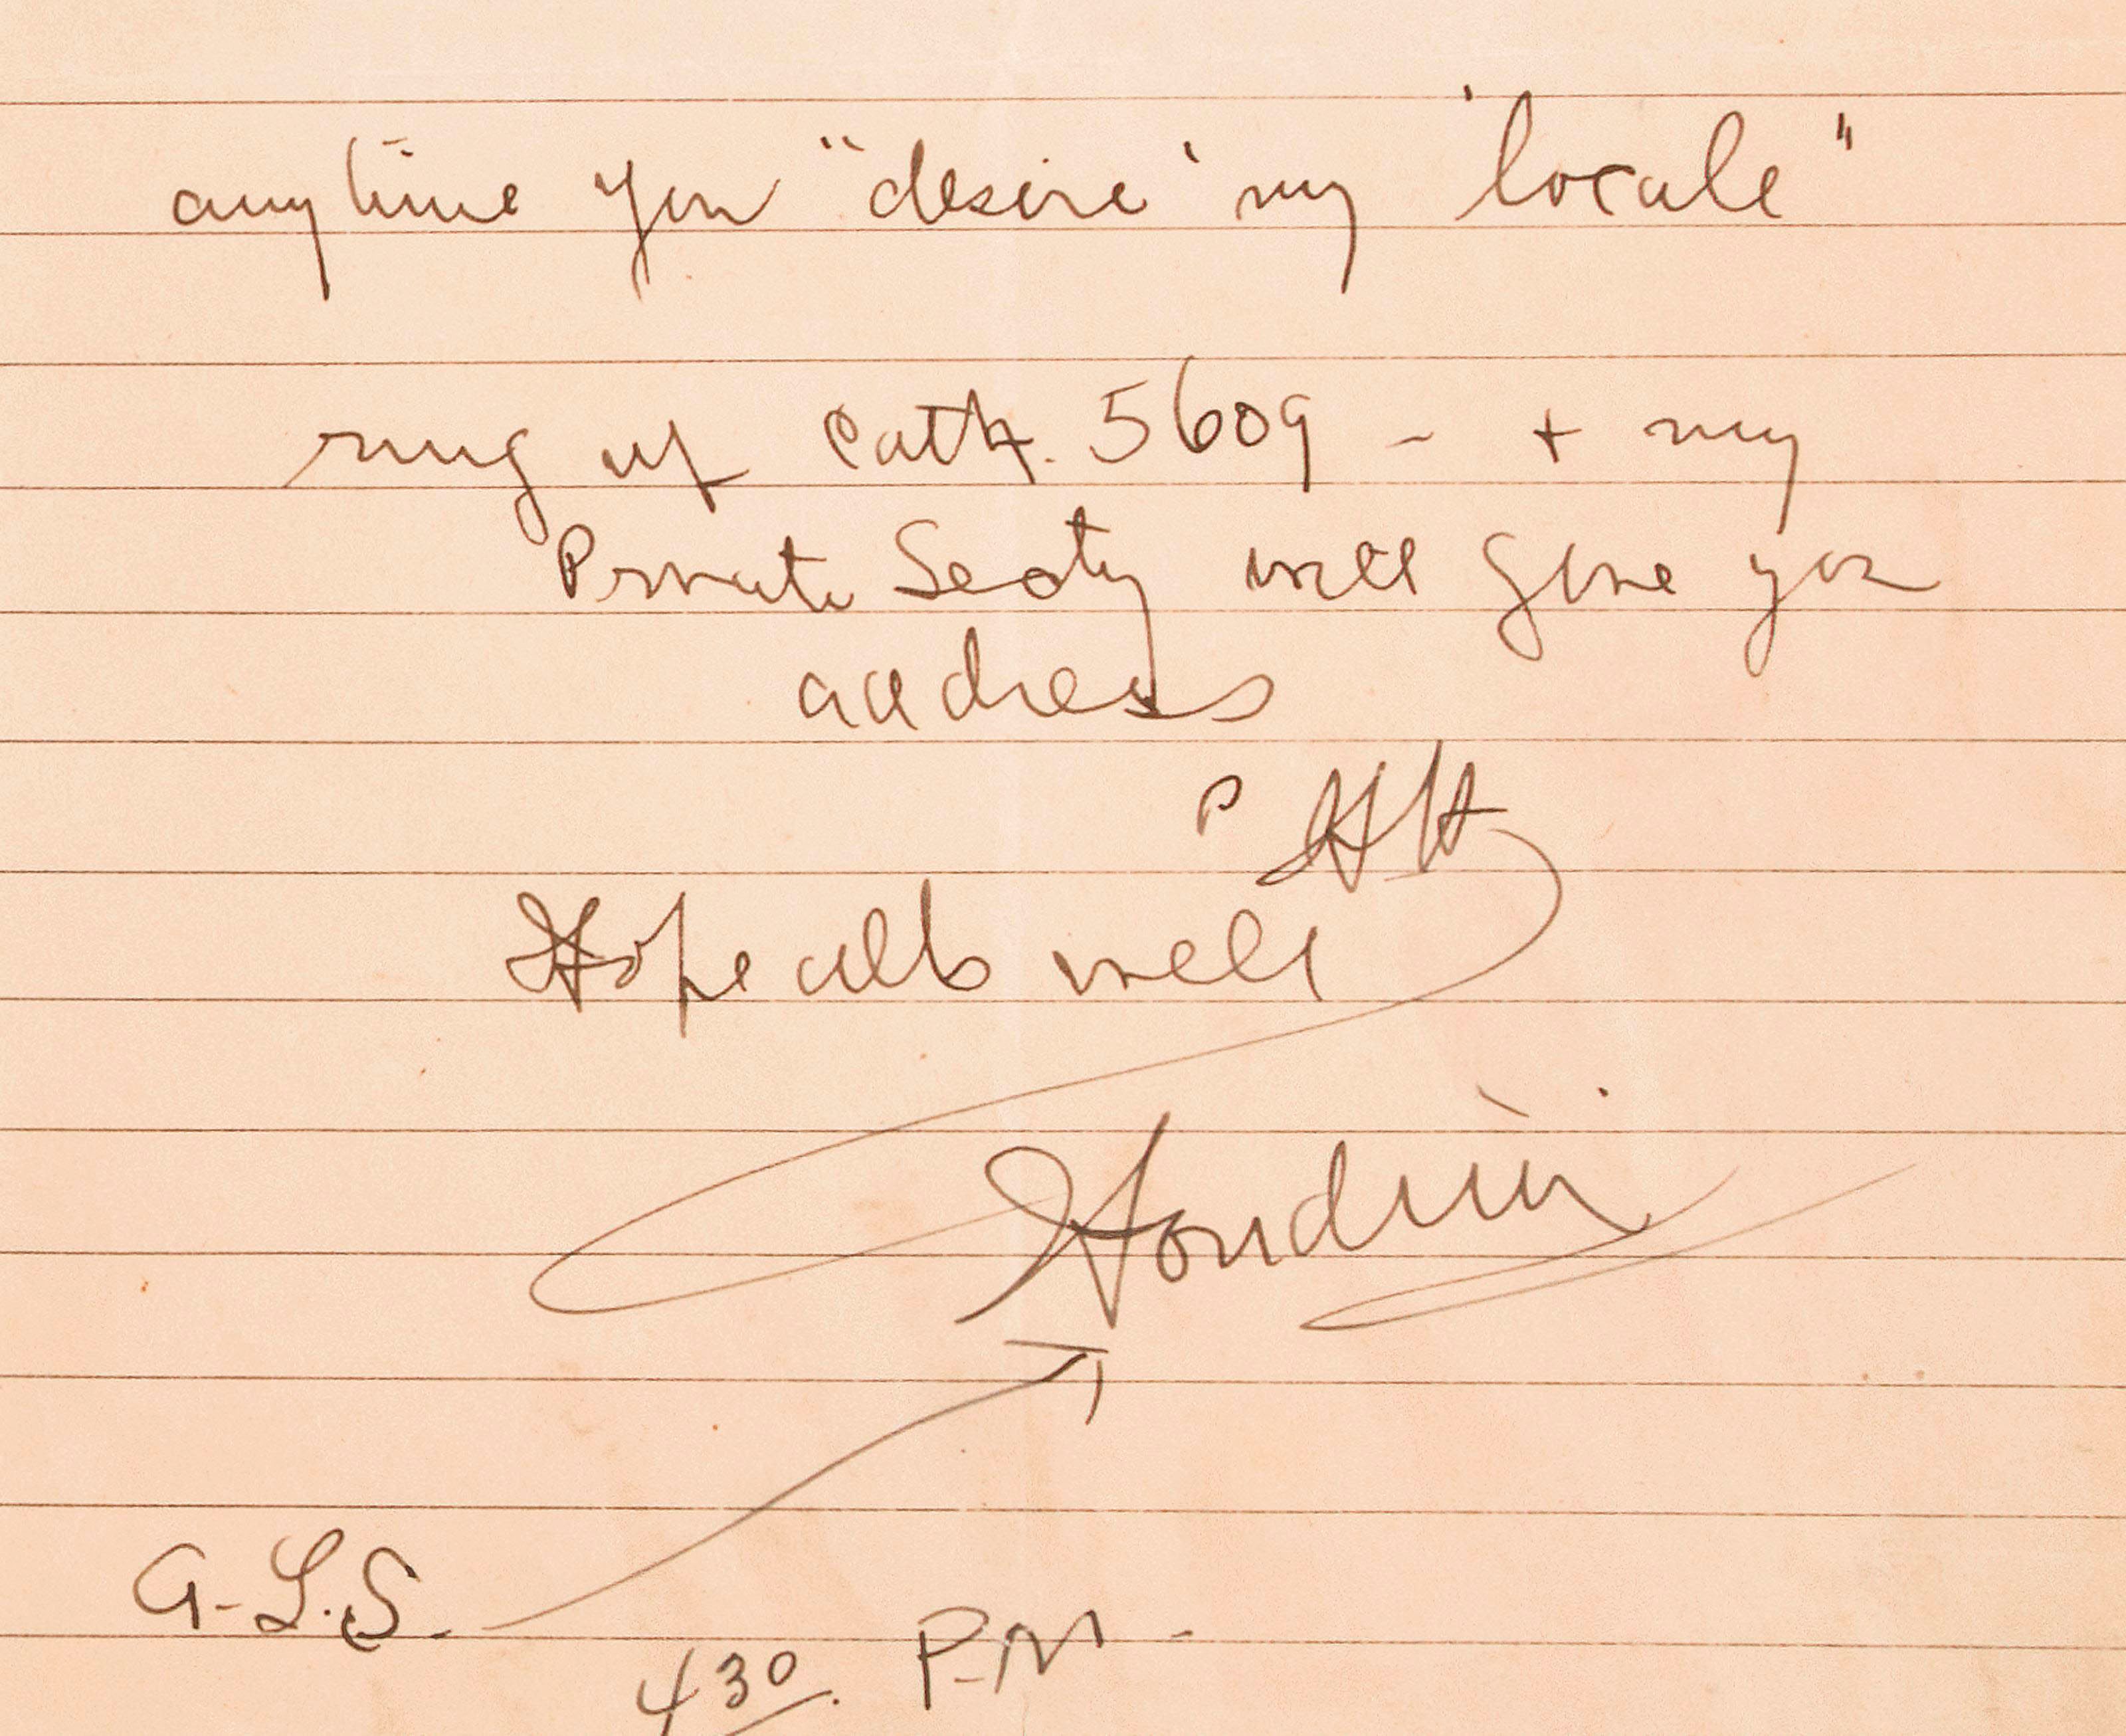 anytime you "desire" my "locale"
ring up Cath. 5609 - + my
Private Secty will give you
address
HH
Hope alls well
Houdini
A.L.S.
430. P.M -